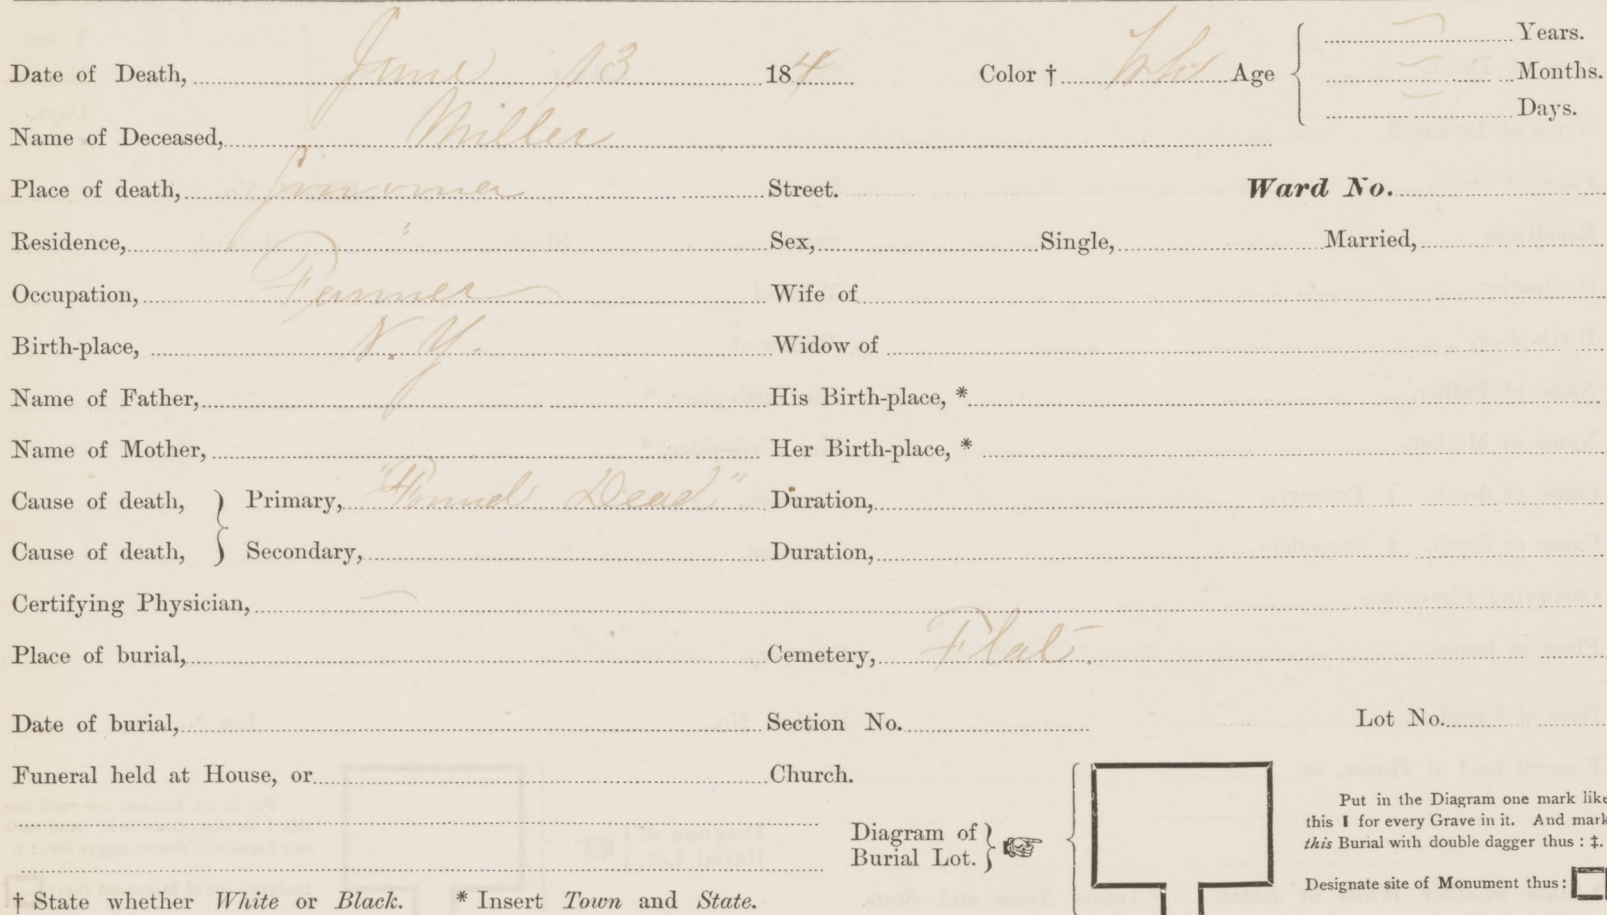 Date of Death, June 13 184 Color † Wh Age Years.
Months.
Days.
Name of Deceased, Miller
Place of death, Street. Ward No.
Residence, " Sex, Single, Married,
Occupation, Farmer Wife of
Birth-place, N.Y. Widow of
Name of Father, His Birth-place, *
Name of Mother, Her Birth-place, *
Cause of death, } Primary, "Found Dead" Duration,
Cause of death, } Secondary, Duration,
Certifying Physician, —
Place of burial, Cemetery, Flat.
Date of burial, Section No. Lot No.
Funeral held at House, or Church.
Diagram of
Burial Lot.
Put in the Diagram one mark like
this I for every Grave in it. And mark
this Burial with double dagger thus : ‡.
Designate site of Monument thus :
† State whether White or Black. * Insert Town and State.